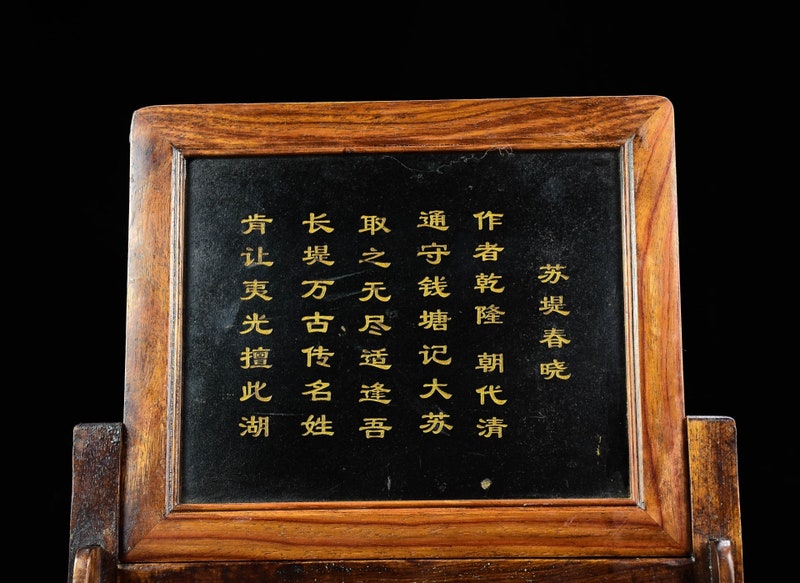 苏堤春晓
作者乾隆 朝代清
通守钱塘记大苏
取之无尽适逢吾
长堤万古传名姓
肯让夷光擅此湖